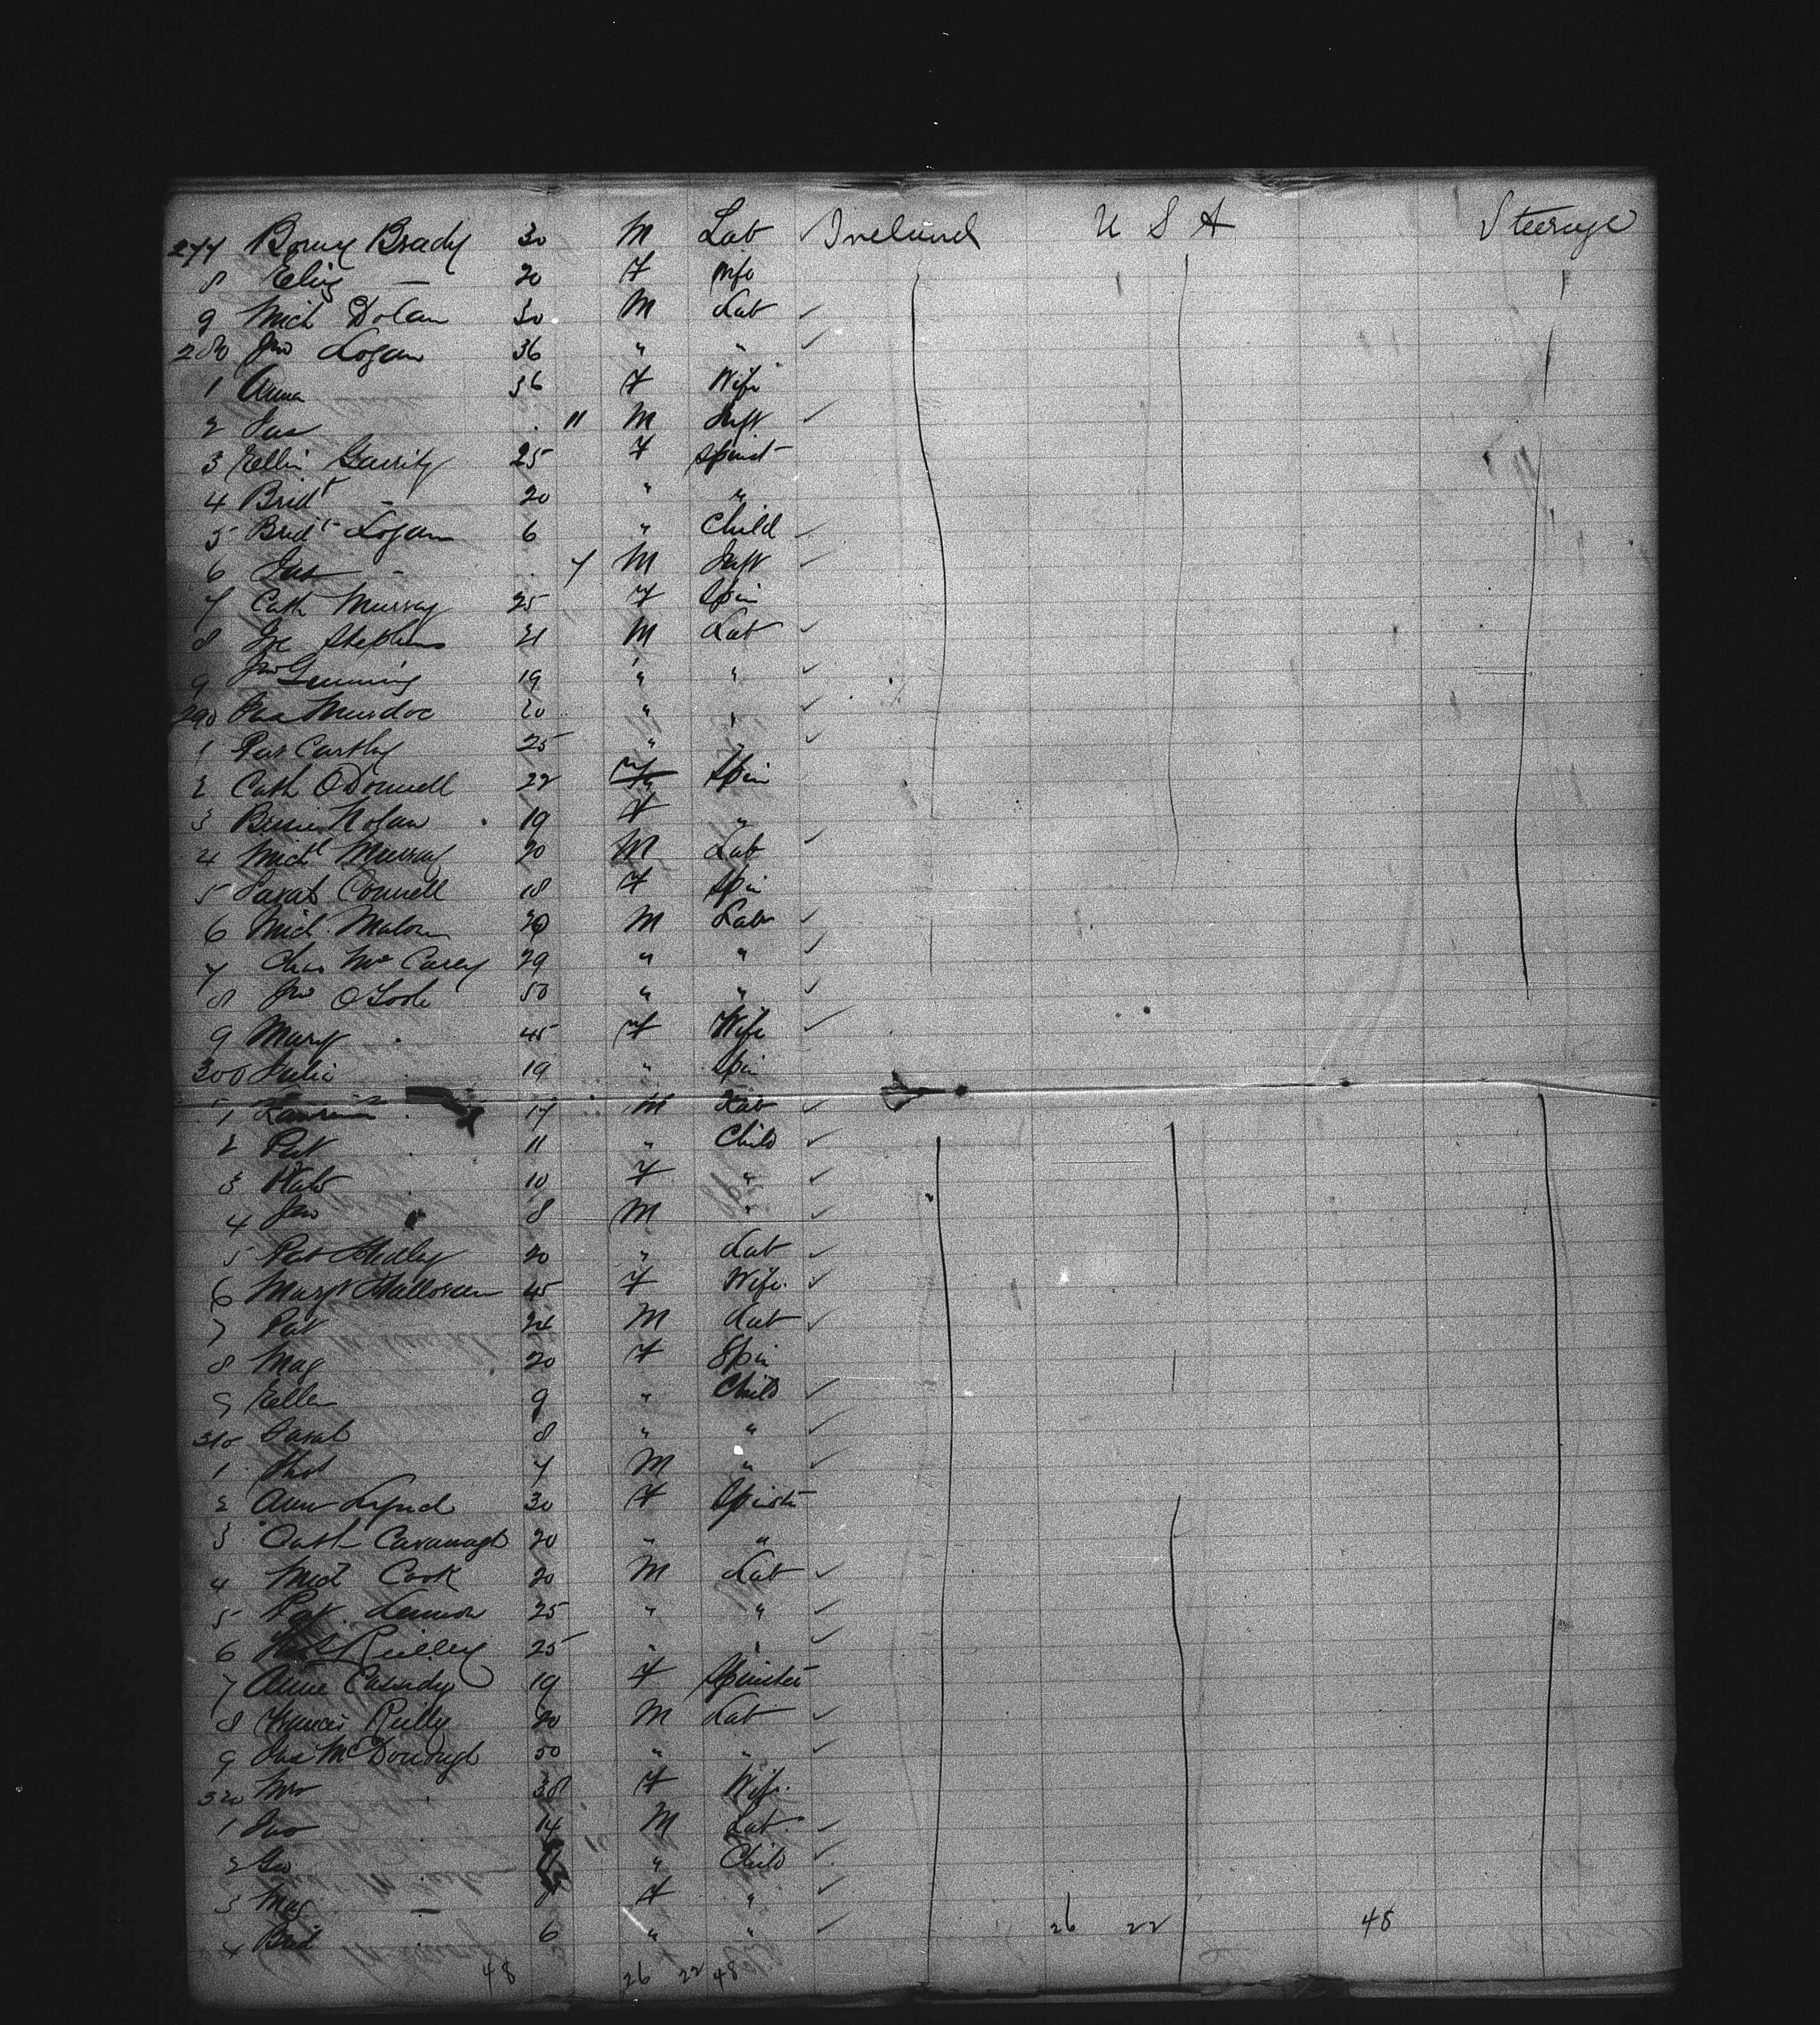 277 Bowy Brady 30 M Lab Ireland U S A Steerage
8 Eliz — 20 F Wife
9 Mich Dolan 30 M Lab ✓
280 Jno Logan 36 " " ✓
1 Anna 36 F Wife
2 Jas 11 M Inft ✓
3 Ellin Garrity 25 F Spinst
4 Bridt — 20 " "
5 Bridt Logan 6 " Child ✓
6 Jas — 7 M Inft ✓
7 Cath Murray 25 F Spin
8 Stephens 21 M Lab ✓
9 Jno 19 " " ✓
290 Jas Murdoc 20 " " ✓
1 Pat Carthy 25 " " ✓
2 Cath O'Donnell 22 " Spin
3 Bessie Nolan 19 F "
4 Michl Murray 20 M Lab ✓
5 Sarah Connell 18 F Spin
6 Mich. Malon 20 M Lab ✓
7 Chas McCarey 29 " " ✓
8 Jno O'Toole 50 " " ✓
9 Mary 45 F Wife ✓
300 Julia 19 " Spin
1 17 M Lab ✓
2 Pat 11 " Child ✓
3 Kate 10 F " ✓
4 Jno 8 M " ✓
5 Pat 20 " Lab ✓
6 Margt Halloran 45 F Wife ✓
7 Pat 24 M Lab ✓
8 Mag 20 F Spin
9 Ellen 9 " Child ✓
310 Sarah 8 " " ✓
1 Thos 7 M " ✓
2 Ann Lynch 30 F Spinst
3 Cath Cavanagh 20 " "
4 Mich Cook 20 M Lab ✓
5 Pat. Lennon 25 " " ✓
6 Reilley 25 " " ✓
7 Anne Cassidy 19 F Spinster
8 Francis Reilly 20 M Lab ✓
9 Jas McDonough 50 " " ✓
320 Mrs 38 F Wife.
1 Jno 14 M Lab. ✓
2 Geo " Child ✓
3 Mag — 8 F " ✓
4 Brid 6 " " ✓ 26 22 48
48 26 22 48